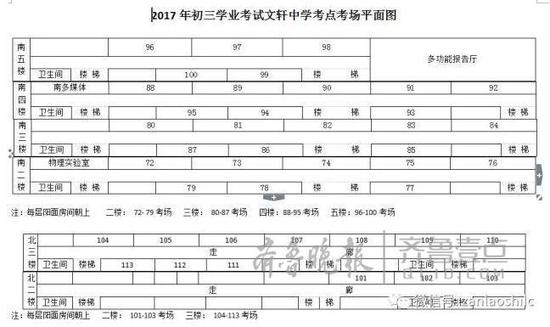 2017年初三学业考试文轩中学考点考场平面图
南五楼 96 97 98 多功能报告厅
卫生间 楼梯 100 99 楼梯
南四楼 南多媒体 88 89 90 91 92
卫生间 楼梯 95 94 楼梯 93
南三楼 80 81 82 83 84
卫生间 楼梯 87 86 楼梯 85
南二楼 物理实验室 72 73 74 75 76
卫生间 楼梯 79 78 楼梯 77
注：每层阳面房间朝上 二楼：72-79考场 三楼：80-87考场 四楼：88-95考场 五楼：96-100考场
北三楼 104 105 106 107 108 109 110
走廊
卫生间 楼梯 113 112 111 楼梯 卫生间
北二楼 101 102 103
走廊
卫生间 楼梯 楼梯 卫生间
注：每层阳面房间朝上 二楼：101-103考场 三楼：104-113考场
齐鲁晚报 齐鲁壹点